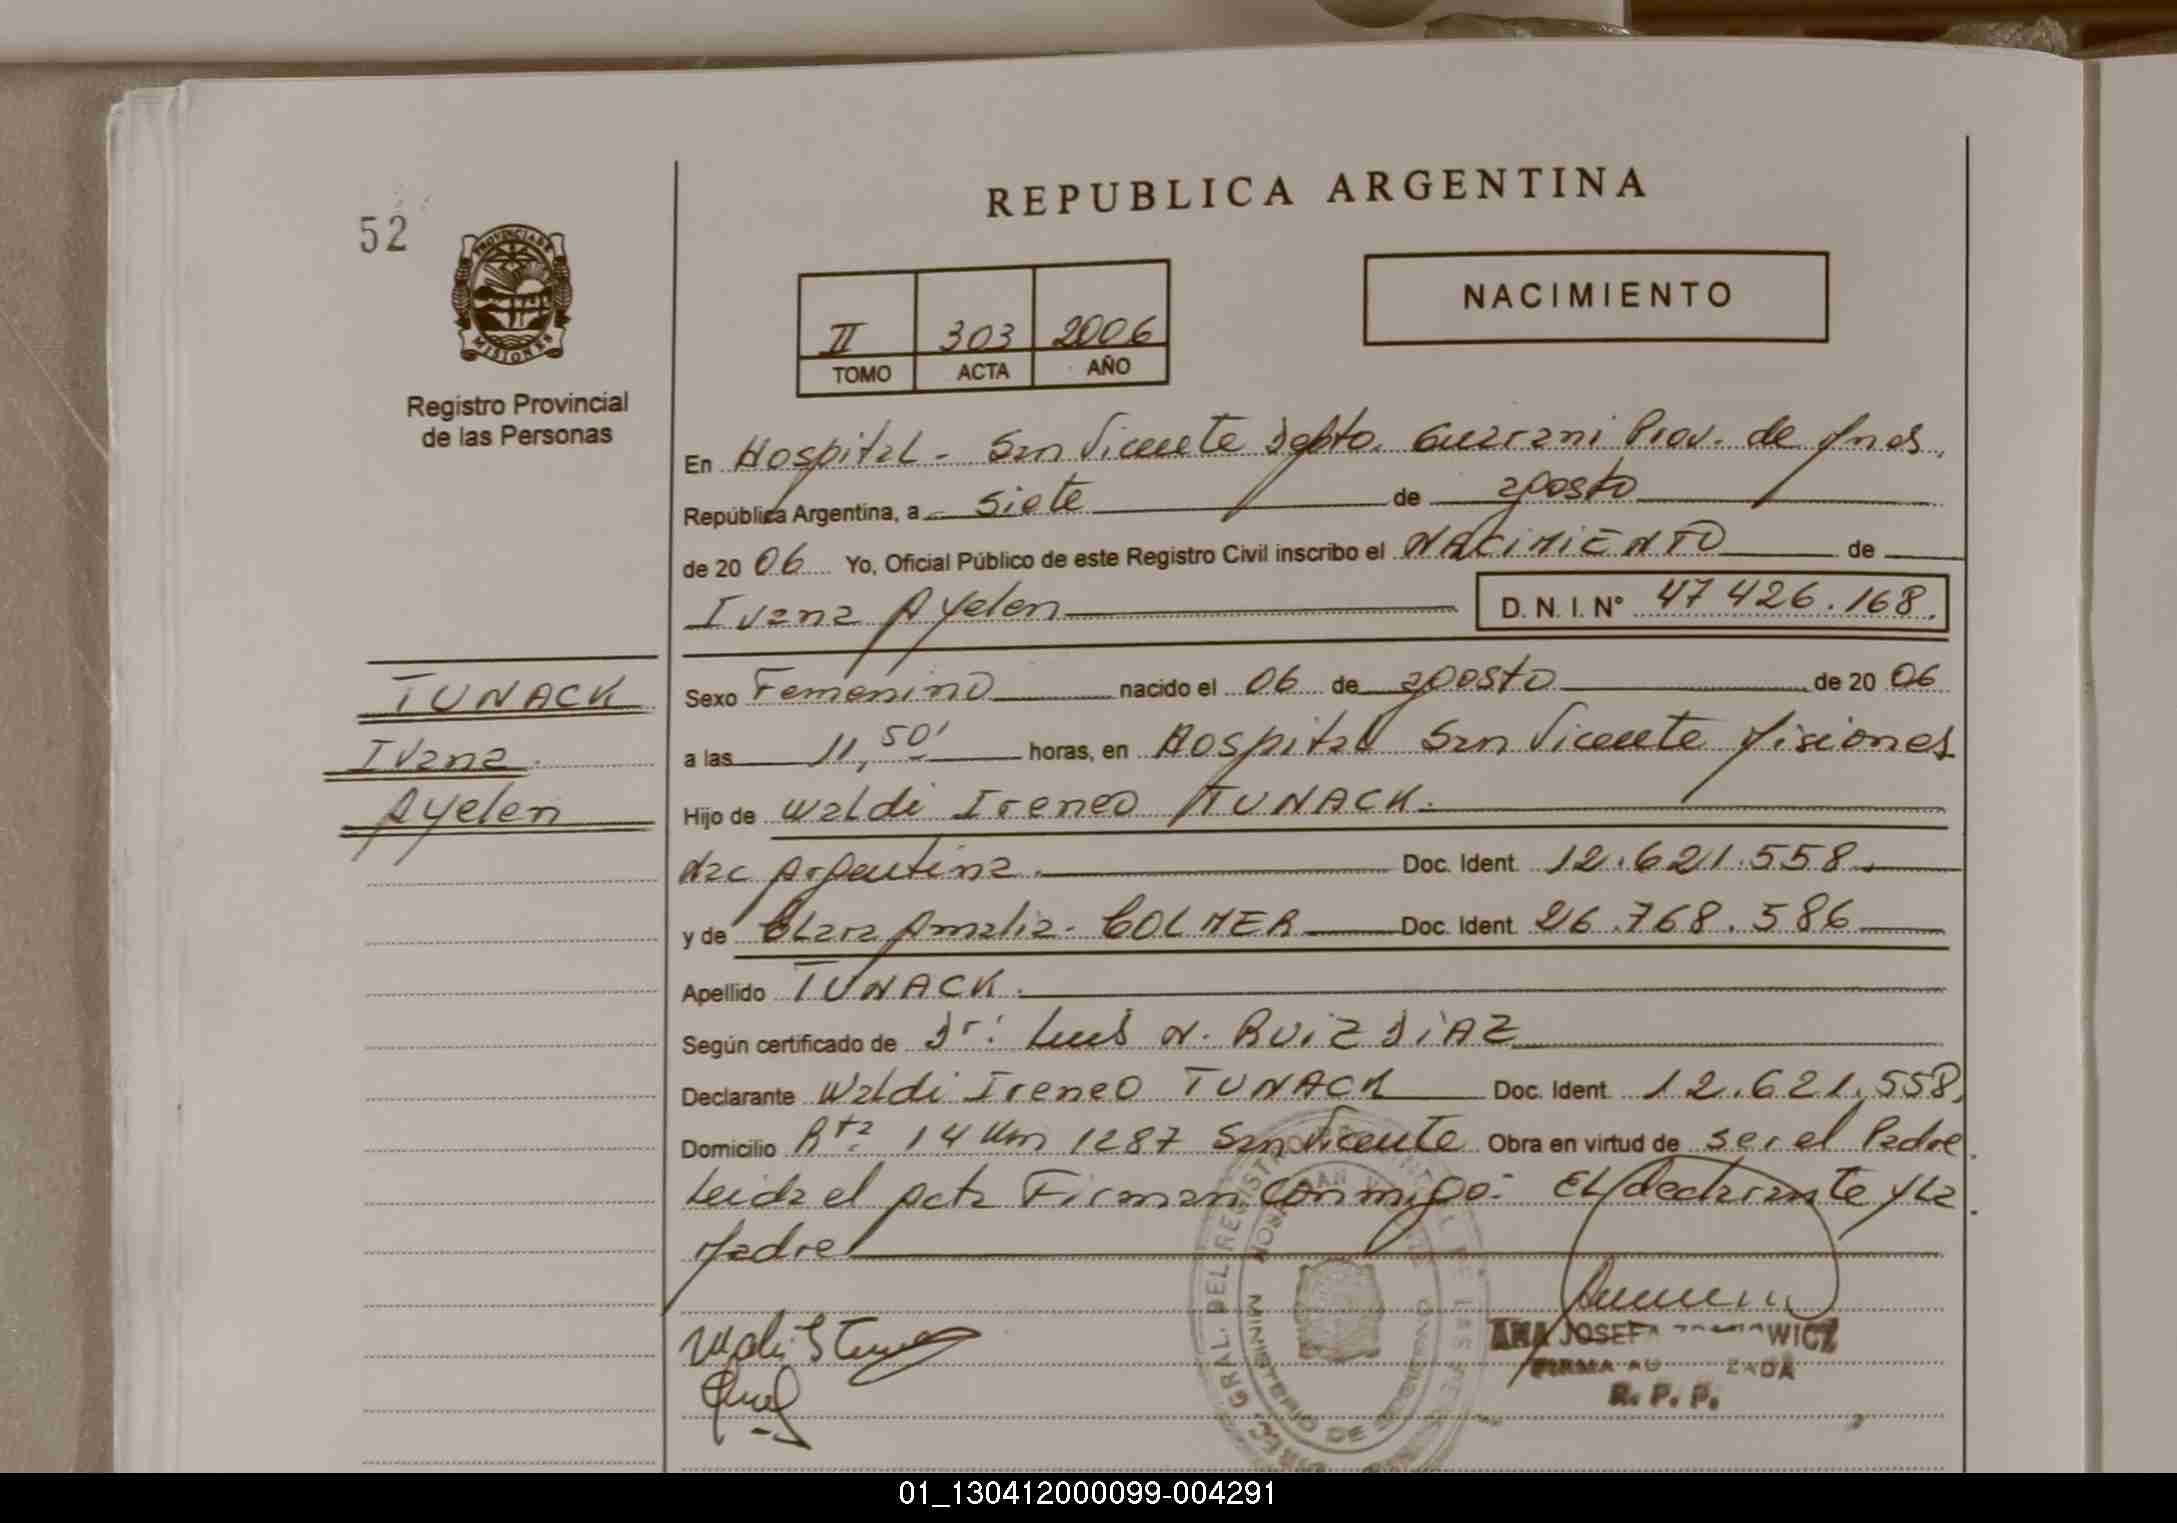 REPUBLICA ARGENTINA
52
PROVINCIA DE
MISIONES
Registro Provincial
de las Personas
NACIMIENTO
II 303 2006
TOMO ACTA AÑO
En Hospital - San Vicente Dpto. Guarani Prov. de Mnes.
República Argentina, a siete de agosto
de 2006 Yo, Oficial Público de este Registro Civil inscribo el NACIMIENTO de
Ivana Ayelen D. N. I. N° 47 426.168.
TUNACK
Ivana
Ayelen
Sexo Femenino nacido el 06 de agosto de 2006
a las 11,50' horas, en Hospital San Vicente Misiones
Hijo de Waldi Ireneo TUNACK.
Nac Argentina. Doc. Ident. 12.621.558.
y de Clara Amalia - COLMER Doc. Ident. 26.768.586
Apellido TUNACK.
Según certificado de Dr: Luis N. RUIZ DIAZ
Declarante Waldi Ireneo TUNACK Doc. Ident. 12.621.558.
Domicilio Rta 14 Km 1287 San Vicente Obra en virtud de ser el Padre
Leida el acta Firman conmigo: El declarante y la
Madre
ANA JOSEFA
FIRMA
R. P. P.
01_130412000099-004291